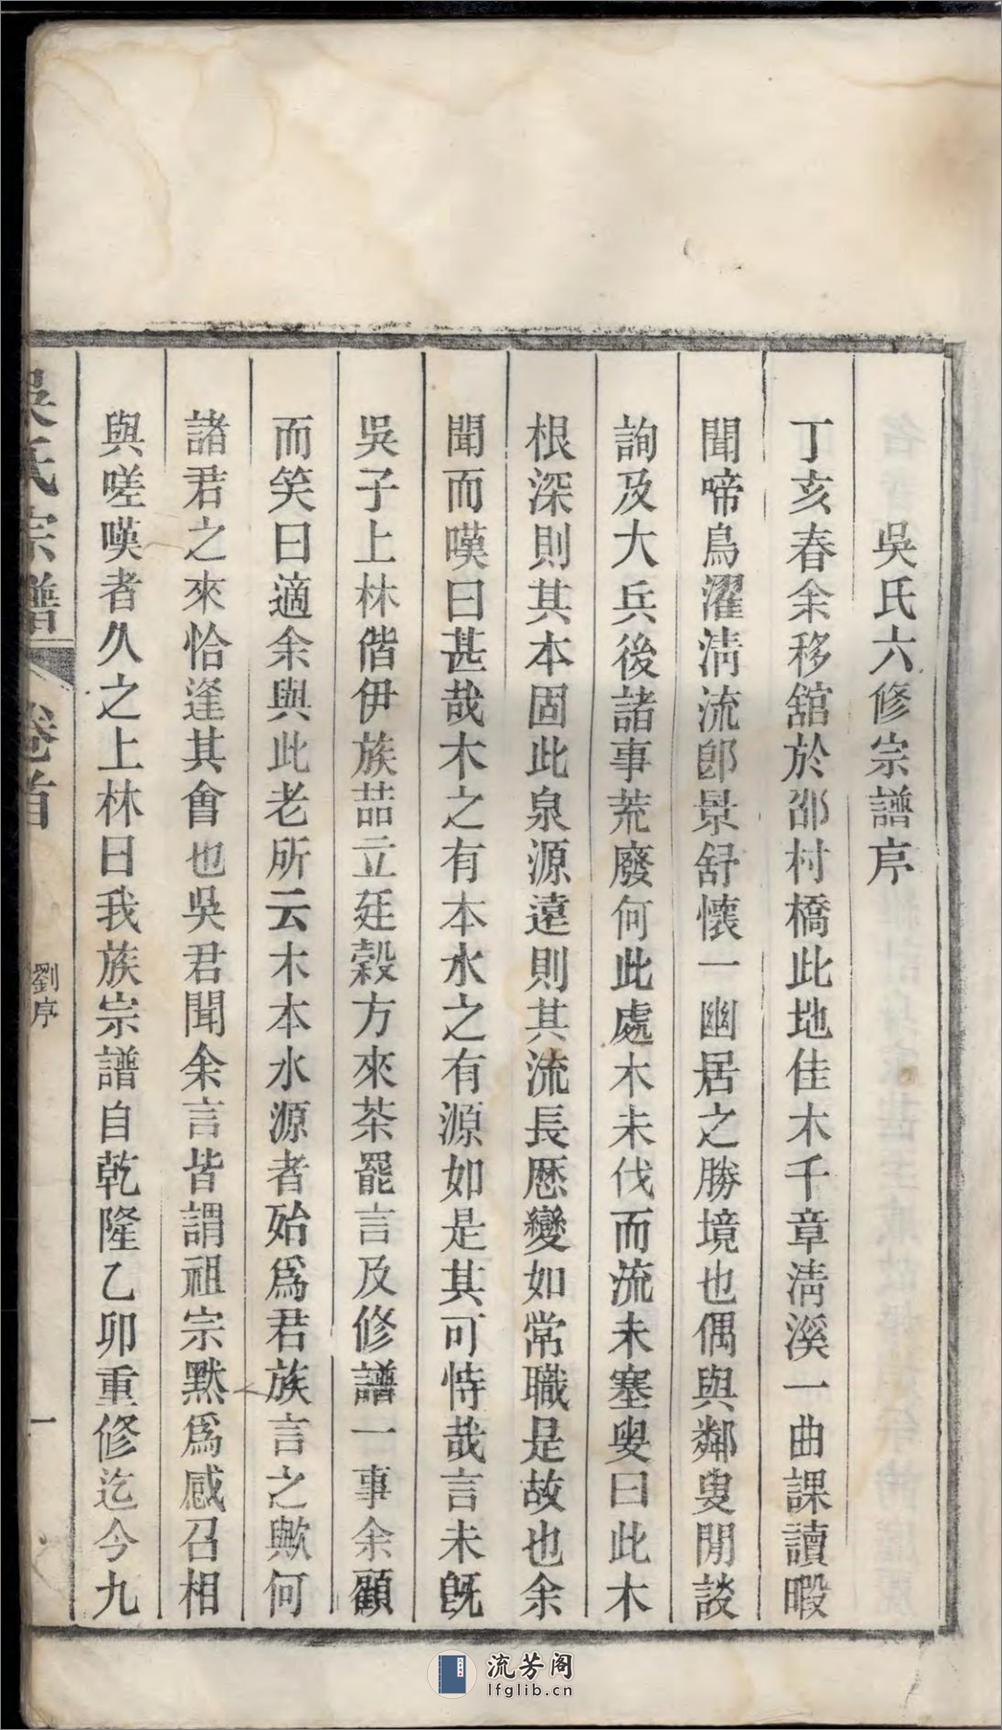 吳氏六修宗譜序
丁亥春余移舘於邵村橋此地佳木千章淸溪一曲課讀暇
聞啼鳥濯淸流卽景舒懷一幽居之勝境也偶與鄰叟閒談
詢及大兵後諸事荒廢何此處木未伐而流未塞叟曰此木
根深則其本固此泉源遠則其流長歷變如常職是故也余
聞而嘆曰甚哉木之有本水之有源如是其可恃哉言未旣
吳子上林偕伊族喆立廷穀方來茶罷言及修譜一事余顧
而笑曰適余與此老所云木本水源者殆爲君族言之歟何
諸君之來恰逢其會也吳君聞余言皆謂祖宗默爲感召相
與嗟嘆者久之上林曰我族宗譜自乾隆乙卯重修迄今九
吳氏宗譜
卷首
劉序
一
流芳阁
lfglib.cn